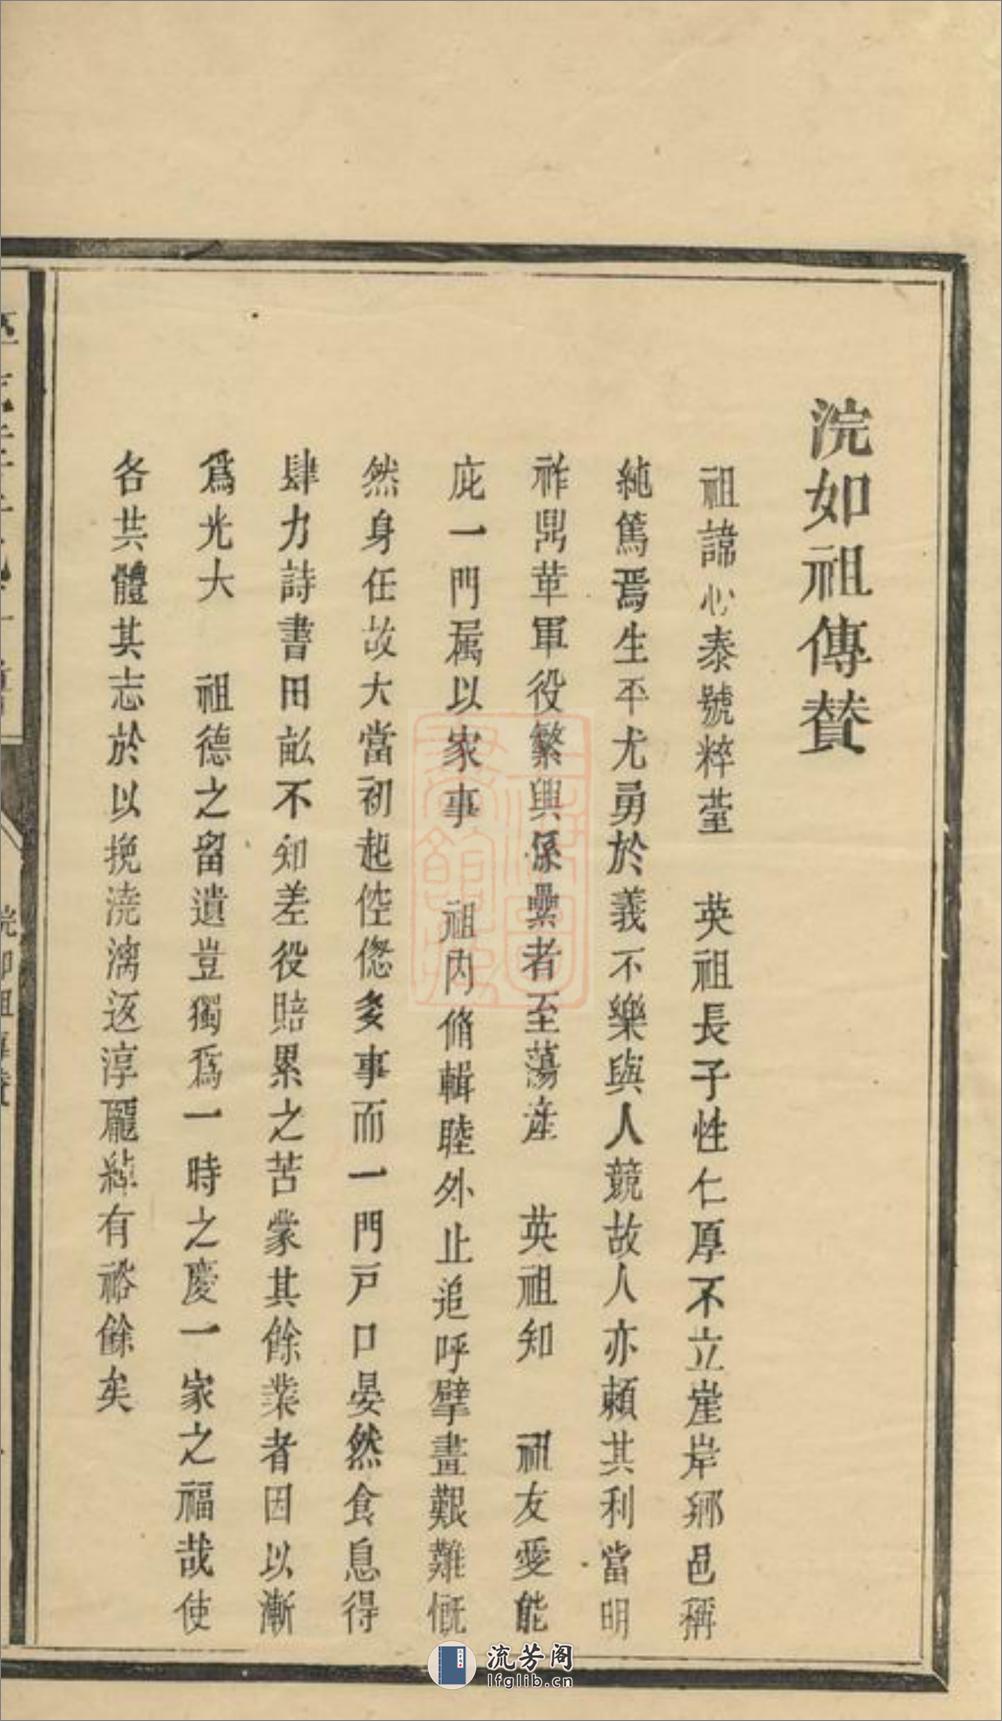 浣如祖傳贊
祖諱心泰號粹瑩 英祖長子性仁厚不立崖岸鄉邑稱
純篤焉生平尤勇於義不樂與人競故人亦賴其利當明
祚鼎革軍役繁興係纍者至蕩產 英祖知 祖友愛能
庇一門屬以家事 祖內脩輯睦外止追呼擘畫艱難慨
然身任故大當初起倥偬多事而一門戶口晏然食息得
肆力詩書田畝不知差役賠累之苦蒙其餘業者因以漸
爲光大 祖德之留遺豈獨爲一時之慶一家之福哉使
各共體其志於以挽澆漓返淳龐綽有裕餘矣
流芳阁
lfglib.cn